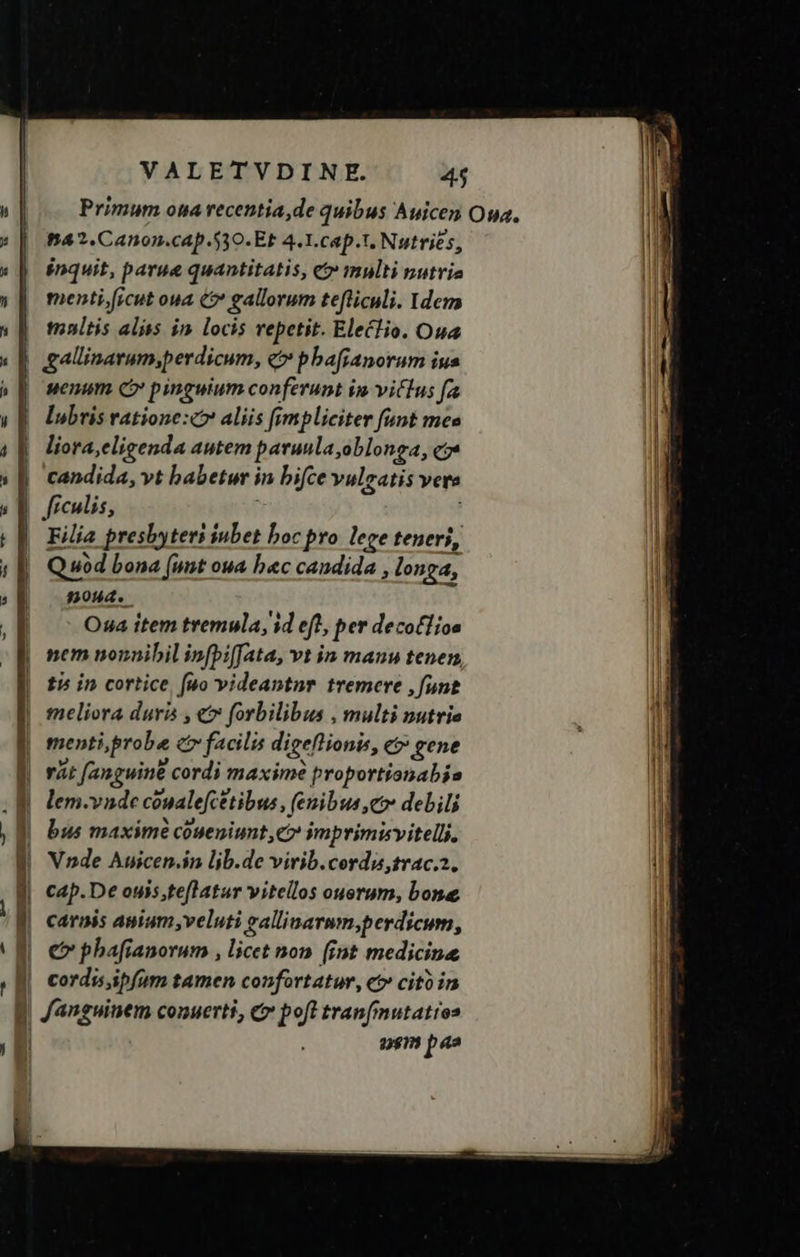 VALETVDINE. 45
Primum oua recentia, de quibus Auicen Oua.
na 2. Canon. cap. 530. Et 4. 1. cap. 1. Nutriẽs,
inquit, paruæ quantitatis, & multi nutria
menti, sicut oua & gallorum testiculi. Idem
multis aliis in locis repetit. Electio. Oua
gallinarum, perdicum, & phasianorum iua
uenum & pinguium conferunt in victus sa
lubris ratione: & aliis simpliciter sunt mea
liora, eligenda autem paruula, oblonga, &
candida, vt habetur in hisce vulgatis vera
siculis,
Filia presbyteri iubet hoc pro lege teneri,
Quòd bona sunt oua hæc candida , longa,
noua.
Oua item tremula, id est, per decoctioa
nem nonnihil inspissata, vt in manu tenen,
tis in cortice suo videantur tremere , sunt
meliora duris , & sorbilibus , multi nutria
menti, probæ & facilis digestionis, & gene
rãt sanguinẽ cordi maximè proportionabia
lem. vnde cõualescẽtibus, senibus, & debili
bus maximè cõueniunt, & imprimis vitelli.
Vnde Auicen. in lib. de virib. cordis, trac. 2.
cap. De ouis, testatur vitellos ouorum, bonæ
carnis auium, veluti gallinarum, perdicum,
& phasianorum , licet non sint medicinæ
cordis, ipsum tamen confortatur, & citò in
sanguinem conuerti, & post transmutatioa
nem paa